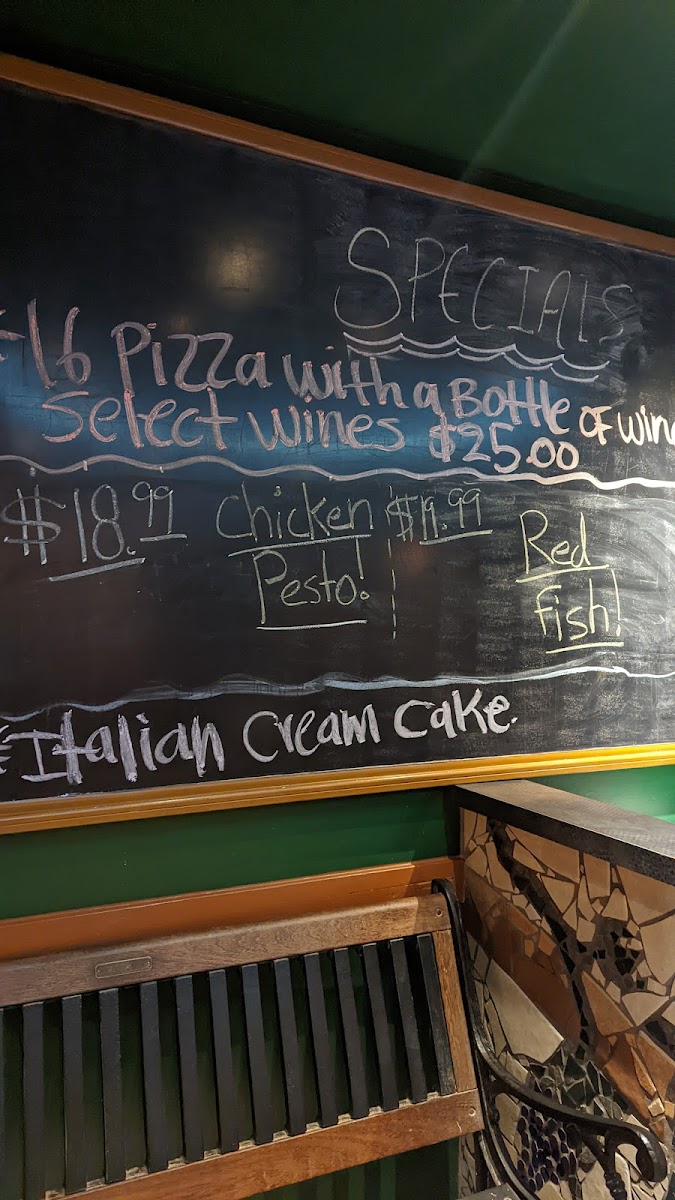 SPECIALS
-16 Pizza with a Bottle OF wine
Select wines $25.00
$18.99 Chicken Pesto!
$19.99 Red Fish!
Italian Cream Cake.